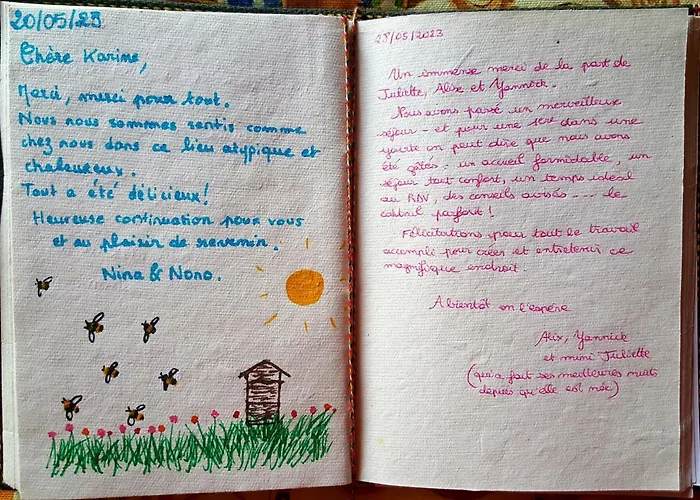 20/05/23
Chère Karine,
Merci, merci pour tout.
Nous nous sommes sentis comme
chez nous dans ce lieu atypique et
chaleureux.
Tout a été délicieux!
Heureuse continuation pour vous
et au plaisir de revenir.
Nina & Nono.
28/05/2023
Un immense merci de la part de
Juliette, Alix et Yannick.
Nous avons passé un merveilleux
séjour - et pour une 1ère dans une
yourte on peut dire que nous avons
été gâtés : un accueil formidable, un
séjour tout confort, un temps idéal
au RDV, des conseils avisés ... le
cocktail parfait!
Félicitations pour tout le travail
accompli pour créer et entretenir ce
magnifique endroit.
A bientôt on l'espère
Alix, Yannick
et mimi Juliette
(qui a fait ses meilleures nuits
depuis qu'elle est née)